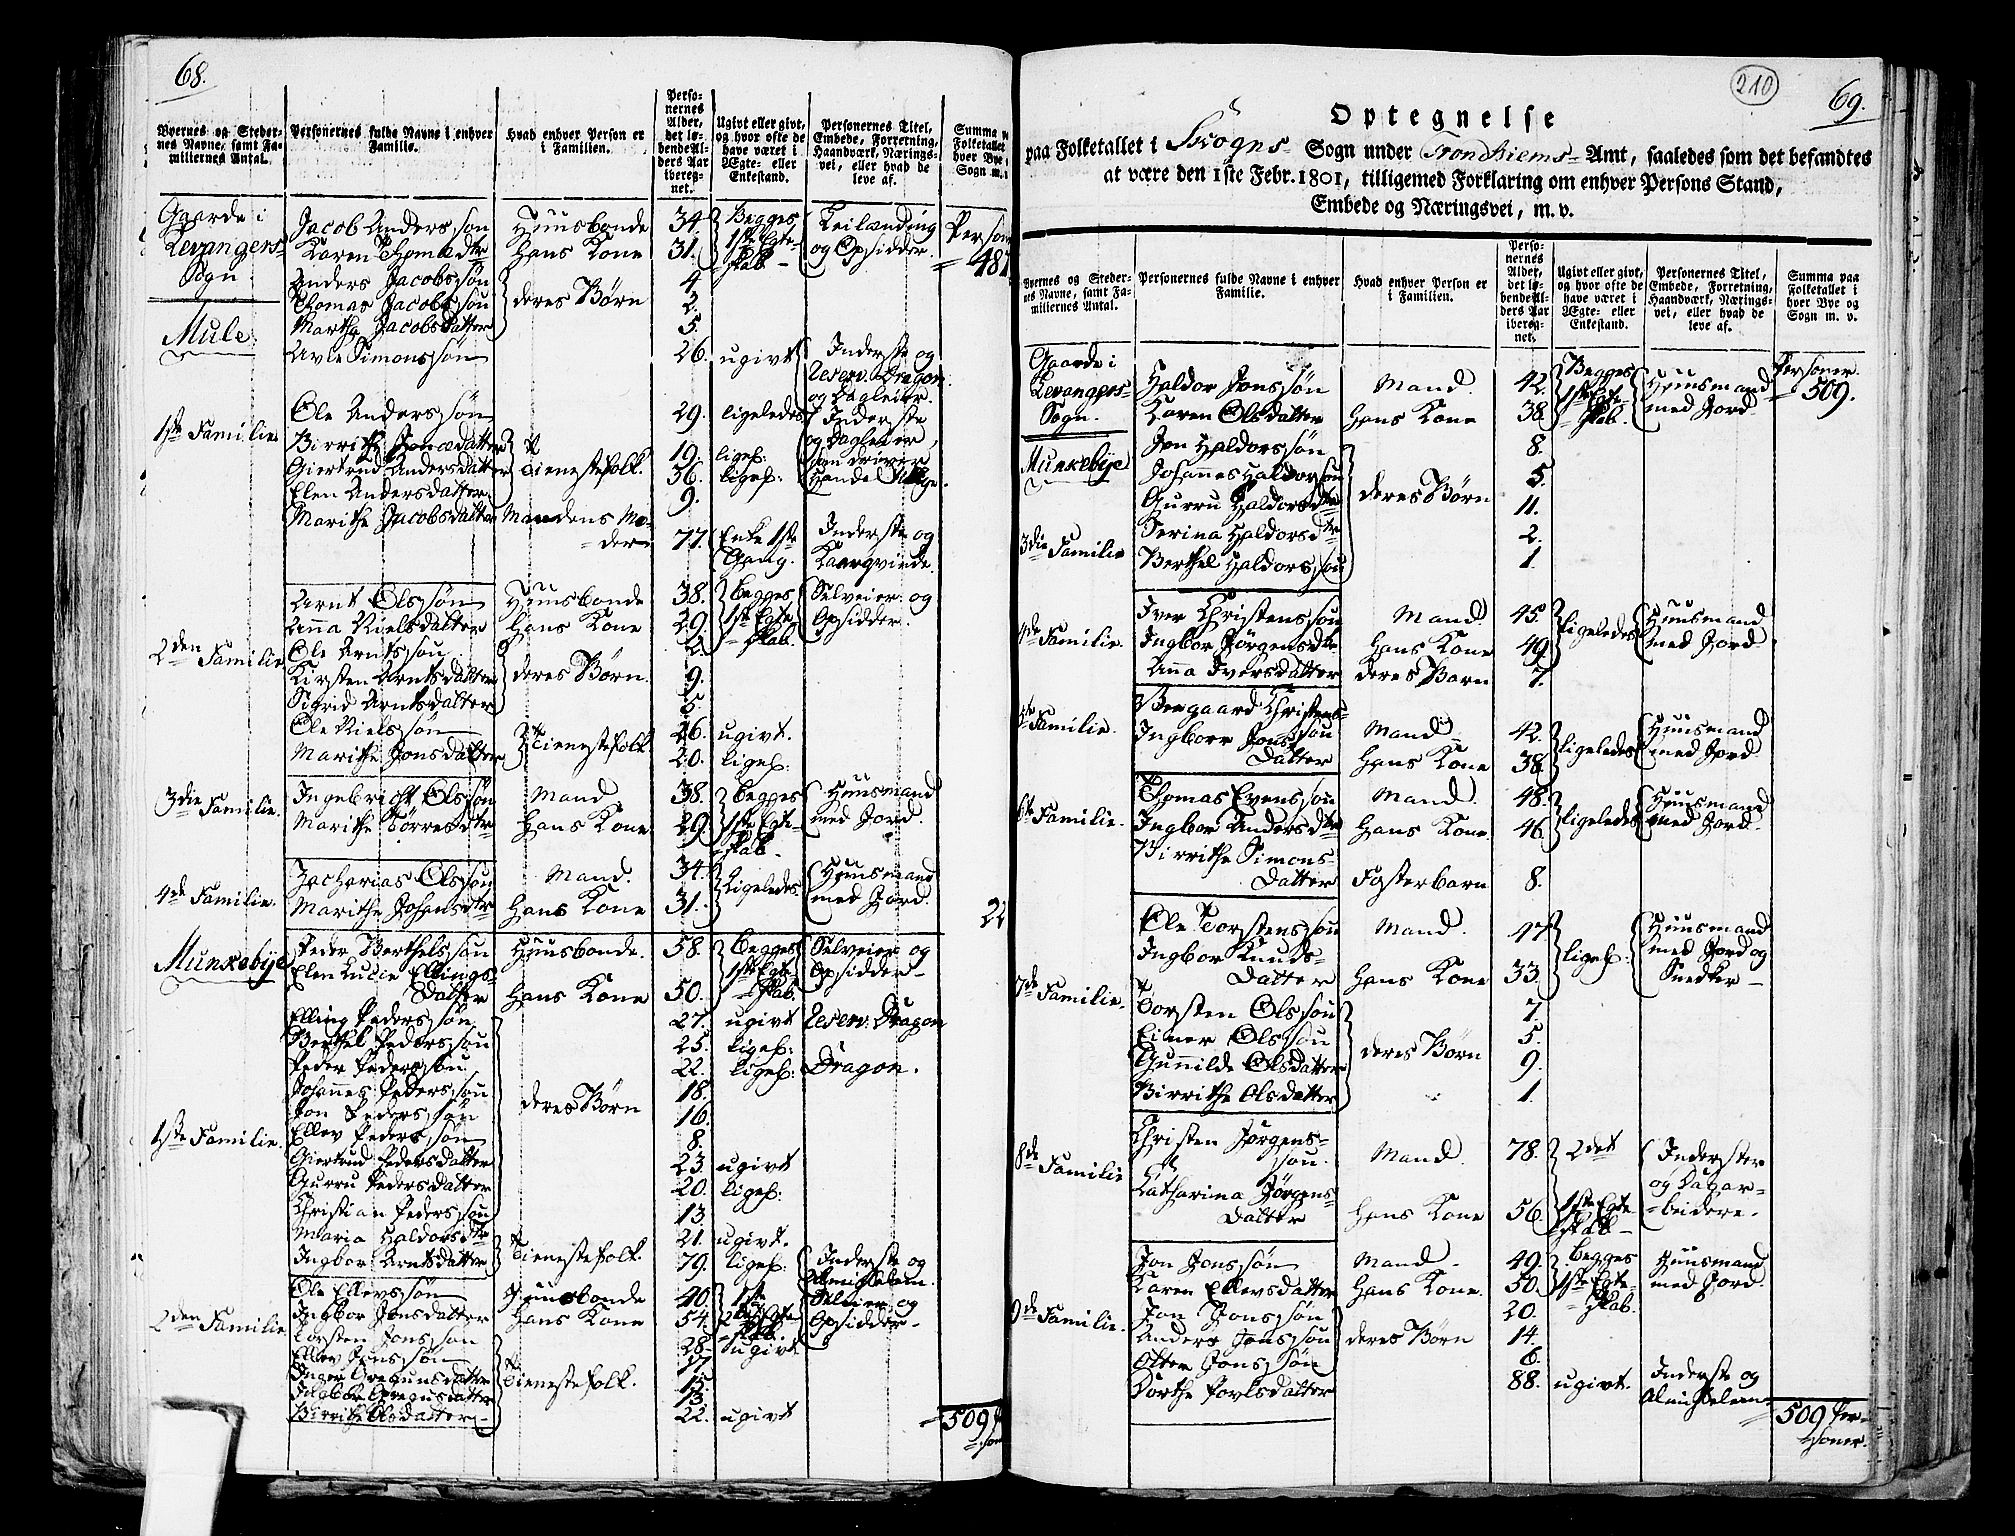 68.
Byernes og Steder-
nes Navne, samt Fa-
miliernes Antal.
Personernes fulde Navne i enhver
Familie.
Hvad enhver Person er
i Familien.
Perso-
nernes
Alder,
det lø-
bende Al-
ders Aar
iberegn-
net.
Ugivt eller givt,
og hvor ofte de
have været i
Ægte- eller
Enkestand.
Personernes Titel,
Embede, Forretning,
Haandværk, Nærings-
vei, eller hvad de
leve af.
Summa
Folketallet
hver Bye
Sogn m.
Gaarde i
Levangers
Sogn
Mule
Jacob Anderssøn Huusbonde 34. Begges 1ste Egte-skab Leilænding og Opsidder Person 487
Karen Thomædtr Hans Kone 31.
Anders Jacobssøn deres Børn 4.
Thomas Jacobssøn 2.
Martha Jacobsdatter 5.
Avle Simonssøn 26. ugivt Inderste og Reserv. Dragon og Dagleier.
1ste Familie
Ole Anderssøn 29. ligeledes Inderste og Dagleier,
Birrithe Jonædatter Tienestefolk. 19. liges:
Giertrud Andersdatter 36. liges:
Elen Andersdatter 9.
Marithe Jacobsdatter Mandens Moder 77. Enke 1ste Gang. Inderste og Kaarqvinde.
2den Familie
Arnt Olssøn Huusbonde 38. begges 1ste Egte-skab. Selveier og Opsidder.
Anna Nielsdatter Hans Kone 29.
Ole Arntssøn deres Børn. 2.
Kirsten Arntsdatter 9.
Sigrid Arntsdatter 5.
Ole Nielssøn Tienestefolk 26. ugivt.
Marithe Jonsdatter 20. liges:
3die Familie.
Ingebricht Olssøn Mand 38. begges 1ste Egte-skab. Huusmand med Jord.
Marithe Torresdtr Hans Kone 29.
4de Familie.
Zacharias Olssøn Mand. 34. Ligeledes Huusmand med Jord. 22
Marithe Johansdtr Hans Kone 31.
Munkebye
1ste Familie.
Peder Berthelssøn Huusbonde. 58. begges 1ste Egte-skab. Selveier og Opsidder
Elen Lucie Ellings-
Datter Hans Kone 50.
Elling Pederssøn deres Børn 27. ugivt Reserv. Dragon
Berthel Pederssøn 25. ligес:
Peder Pederssøn 22. ligес: Dragon.
Johannes Pederssøn 18.
Jon Pederssøn 16.
Ellev Pederssøn 8.
Giertrud Pedersdatter 23. ugivt
Gurru Pedersdatter 20. liges:
Christian Pederssøn 13
Maria Haldorsdtr Tienestefolk. 21. ugivt.
Ingbor Arntsdatter 79. liges: Inderste og Almisselem.
2den Familie
Ole Ellevssøn Huusbonde 40. 1ste Selveier og Opsidder
Ingbor Jonsdatter Hans Kone 54. 2det Egte-skab.
Torsten Jonssøn Tienestefolk. 28. ugivt
Ellev Jonssøn 17.
15.
13.
Birrith Olsdatter 22. ugivt
509
210
69.
Optegnelse
paa Folketallet i Skogns Sogn under Trondhiems Amt, saaledes som det befandtes
at være den 1ste Febr. 1801, tilligemed Forklaring om enhver Persons Stand,
Embede og Næringsvei, m. v.
Byernes og Steder-
nes Navne, samt Fa-
miliernes Antal.
Personernes fulde Navne i enhver
Familie.
Hvad enhver Person er
i Familien.
Perso-
nernes
Alder,
det lø-
bende Al-
ders Aar
iberegn-
net.
Ugivt eller givt,
og hvor ofte de
have været i
Ægte- eller
Enkestand.
Personernes Titel,
Embede, Forretning,
Haandværk, Nærings-
vei, eller hvad de
leve af.
Summa paa
Folketallet i
hver Bye og
Sogn m. v.
Gaarde i
Levangers
Sogn.
Munkebye
3die Familie
Haldor Jonssøn Mand. 42. Begges 1ste Egte-skab. Huusmand med Jord Personer 509.
Karen Olsdatter Hans Kone 38.
Jon Haldorssøn deres Børn 8.
Johannes Haldorssøn 5.
Gurru Haldorsdtr 11.
Serina Haldorsdtr 2.
Berthel Haldorssøn 1
4de Familie.
Iver Christenssøn Mand. 45. ligeledes Huusmand med Jord
Ingbor Jørgensdtr Hans Kone 49.
Anna Iversdatter deres Barn 7.
5te Familie.
Bergaard Christens-
søn Mand 42. ligeledes Huusmand med Jord
Ingborr Jons
Datter Hans Kone 38.
6te Familie.
Thomas Evenssøn Mand. 48. ligeledes Huusmand med Jord.
Ingbor Andersdtr Hans Kone. 46.
Birrithe Simons-
Datter Fosterbarn 8.
7de Familie.
Ole Torstenssøn Mand. 47 liges: Huusmand med Jord og Snedker
Ingbor Knuds-
Datter Hans Kone 33.
Torsten Olssøn deres Børn 7.
Eimer Olssøn 5.
Gunnilde Olsdatter 9.
Birrithe Olsdatter 1.
8de Familie
Christen Jørgens-
søn. Mand. 78. 2det Inderster og Dagar-beidere.
Catharina Jørgens-
Datter Hans Kone 56. 1ste Egte skab
9de Familie.
Jon Jonssøn Mand 49. begges 1ste Egte-skab. Huusmand med Jord
Karen Ellevsdatter Hans Kone. 50.
Jon Jonssøn deres Børn 20.
Anders Jonssøn 14.
Otter Jonssøn 6.
Dorthe Povlsdatter 88. ugivt. Inderste og Almisselem
509 Per-
soner.